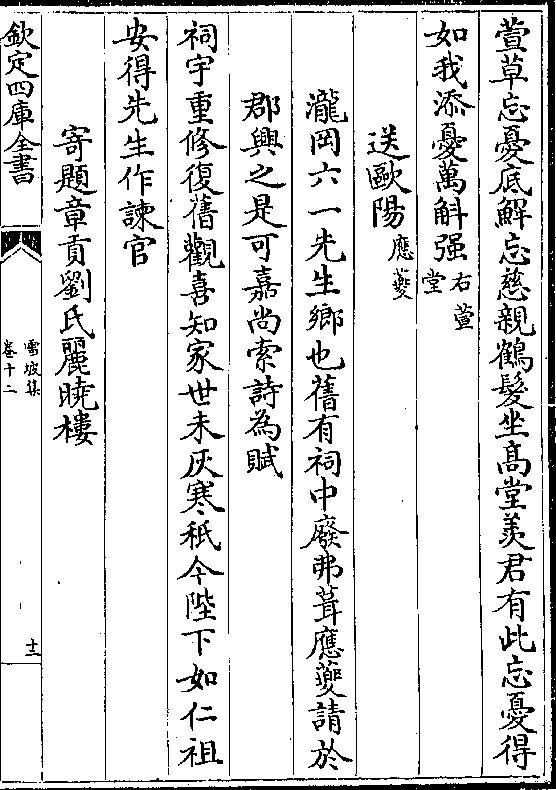 萱草忘憂底解忘慈親鶴髮坐髙堂羡君有此忘憂得
如我添憂萬斛强右萱堂
送歐陽應夔
瀧岡六一先生鄉也舊有祠中廢弗葺應夔請於
郡興之是可嘉尚索詩為賦
祠宇重修復舊觀喜知家世未灰寒秪今陛下如仁祖
安得先生作諫官
寄題章貢劉氏麗曉樓
欽定四庫全書
雪坡集
卷十二
十二